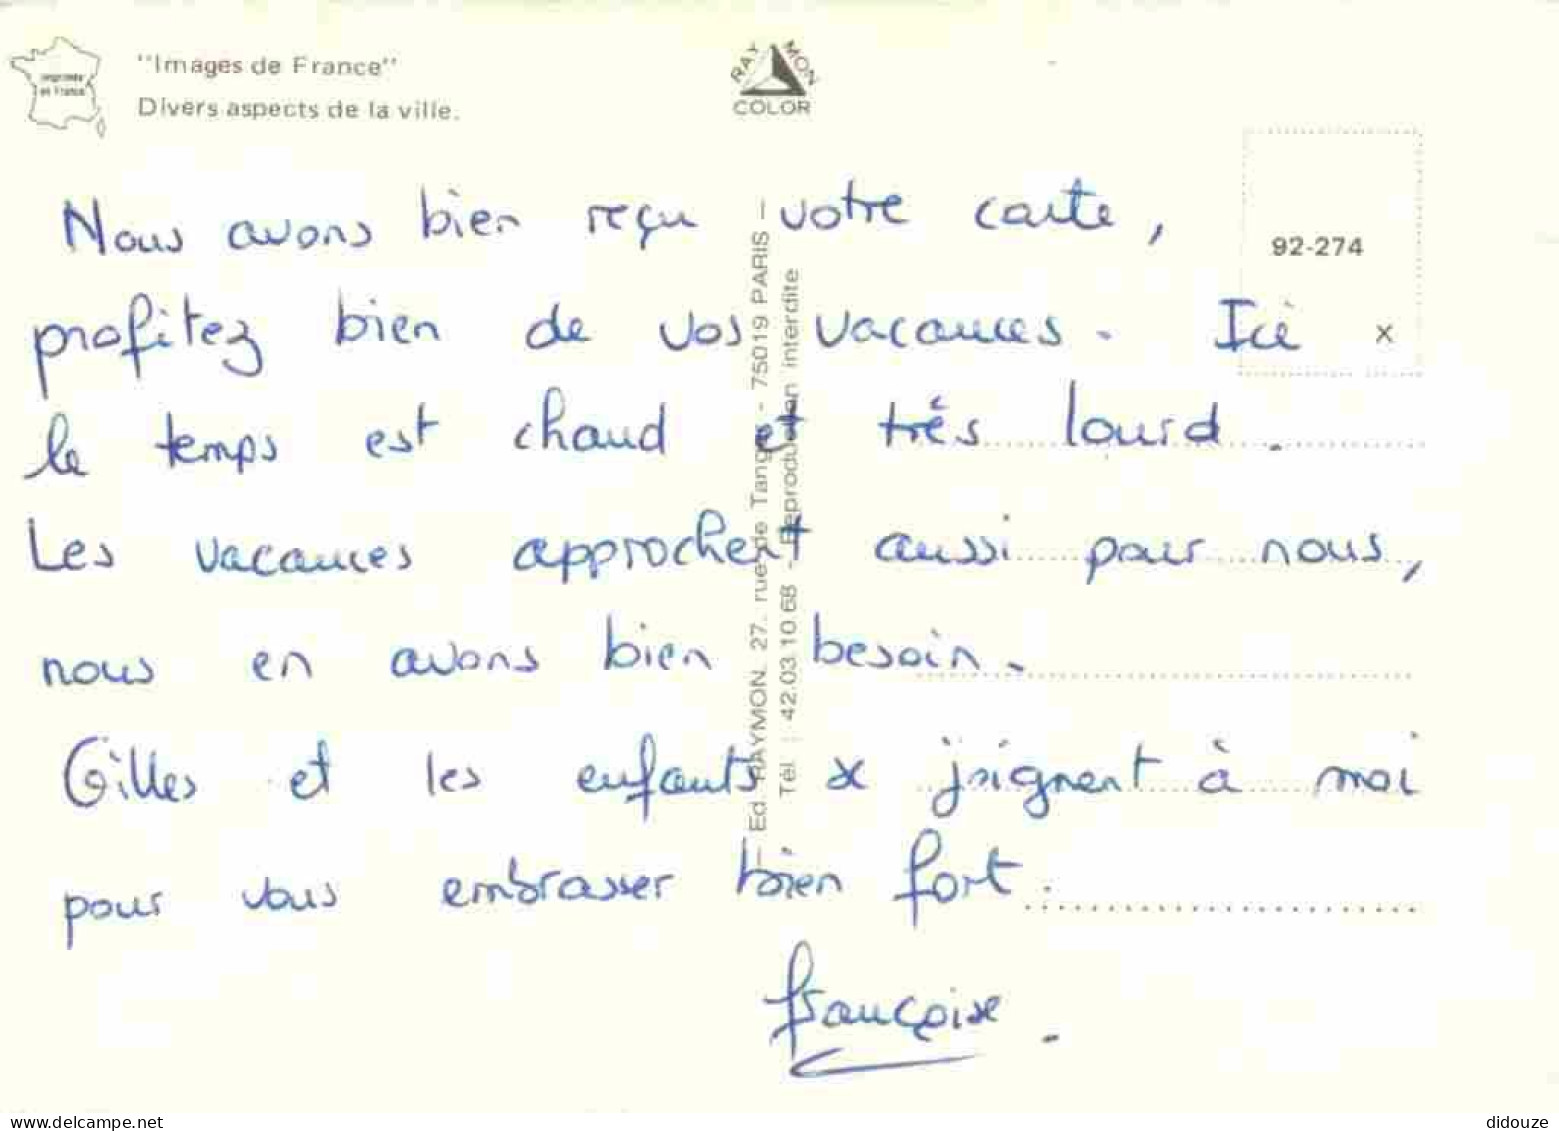 imprimée
en France
"Images de France"
Divers aspects de la ville.
RAYMON
COLOR
92-274
x
Nous avons bien reçu votre carte,
profitez bien de vos vacances. Ici
le temps est chaud et très lourd.
Les vacances approchent aussi pour nous,
nous en avons bien besoin.
Gilles et les enfants se joignent à moi
pour vous embrasser bien fort.
françoise.
— Ed. RAYMON. 27. rue de Tanger - 75019 PARIS —
Tél : 42.03.10 68 - Reproduction interdite
delcampe.net
didouze